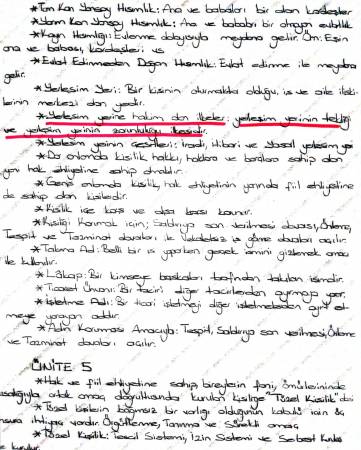 *Tam Kan Yansoy Hısımlık: Ana ve babaları bir olan kardeşler
*Yarım Kan Yansoy Hısımlık: Ana ve babaları bir olmayan
*Kayın Hısımlığı: Evlenme dolayısıyla meydana gelir. Örn: Eşin
ana ve babası, kardeşleri vs
*Evlat Edinmeden Doğan Hısımlık: Evlat edinme ile meydana
gelir.
*Yerleşim Yeri: Bir kişinin oturmakta olduğu, iş ve aile iliş-
kilerinin merkezi olan yerdir.
*Yerleşim yerine hakim olan ilkeler: yerleşim yerinin tekliği
ve yerleşim yerinin zorunluluğu ilkesidir.
*Yerleşim yerinin çeşitleri: İradi, İtibari ve Yasal yerleşim yeri
*Dar anlamda kişilik, hakkı, haklara ve borçlara sahip olan
yani hak ehliyetine sahip olmaktır.
*Geniş anlamda kişilik, hak ehliyetinin yanında fiil ehliyetine
de sahip olan kişilerdir.
*Kişilik içe karşı ve dışa karşı korunur.
*Kişiliği Korumak için; Saldırıya son verilmesi davası, Önleme,
Tespit ve Tazminat davaları ile Vekaletsiz iş görme davaları açılır.
*Takma Ad: Belli bir iş yaparken gerçek ismini gizlemek amacı
ile kullanılır.
*Lakap: Bir kimseye başkaları tarafından takılan isimdir.
*Ticaret Ünvanı: Bir taciri diğer tacirlerden ayırmaya yarar.
*İşletme Adı: Bir ticari işletmeyi diğer işletmelerden ayırt et-
meye yarayan addır.
*Adın Korunması Amacıyla: Tespit, Saldırıya son verilmesi, Önleme
ve Tazminat davaları açılır.
ÜNİTE 5
*Hak ve fiil ehliyetine sahip bireylerin fani, ömürlerinin
ortak amaç doğrultusunda kurulan kişiliğe "Tüzel Kişilik" den
*Tüzel kişilerin bağımsız bir varlığı olduğunun kabulü için üç
unsura ihtiyaç vardır. Örgütlenme, Tanınma ve Sürekli amaç
*Tüzel Kişilik: Tescil Sistemi, İzin Sistemi ve Serbest Kuruluş
kurulur.